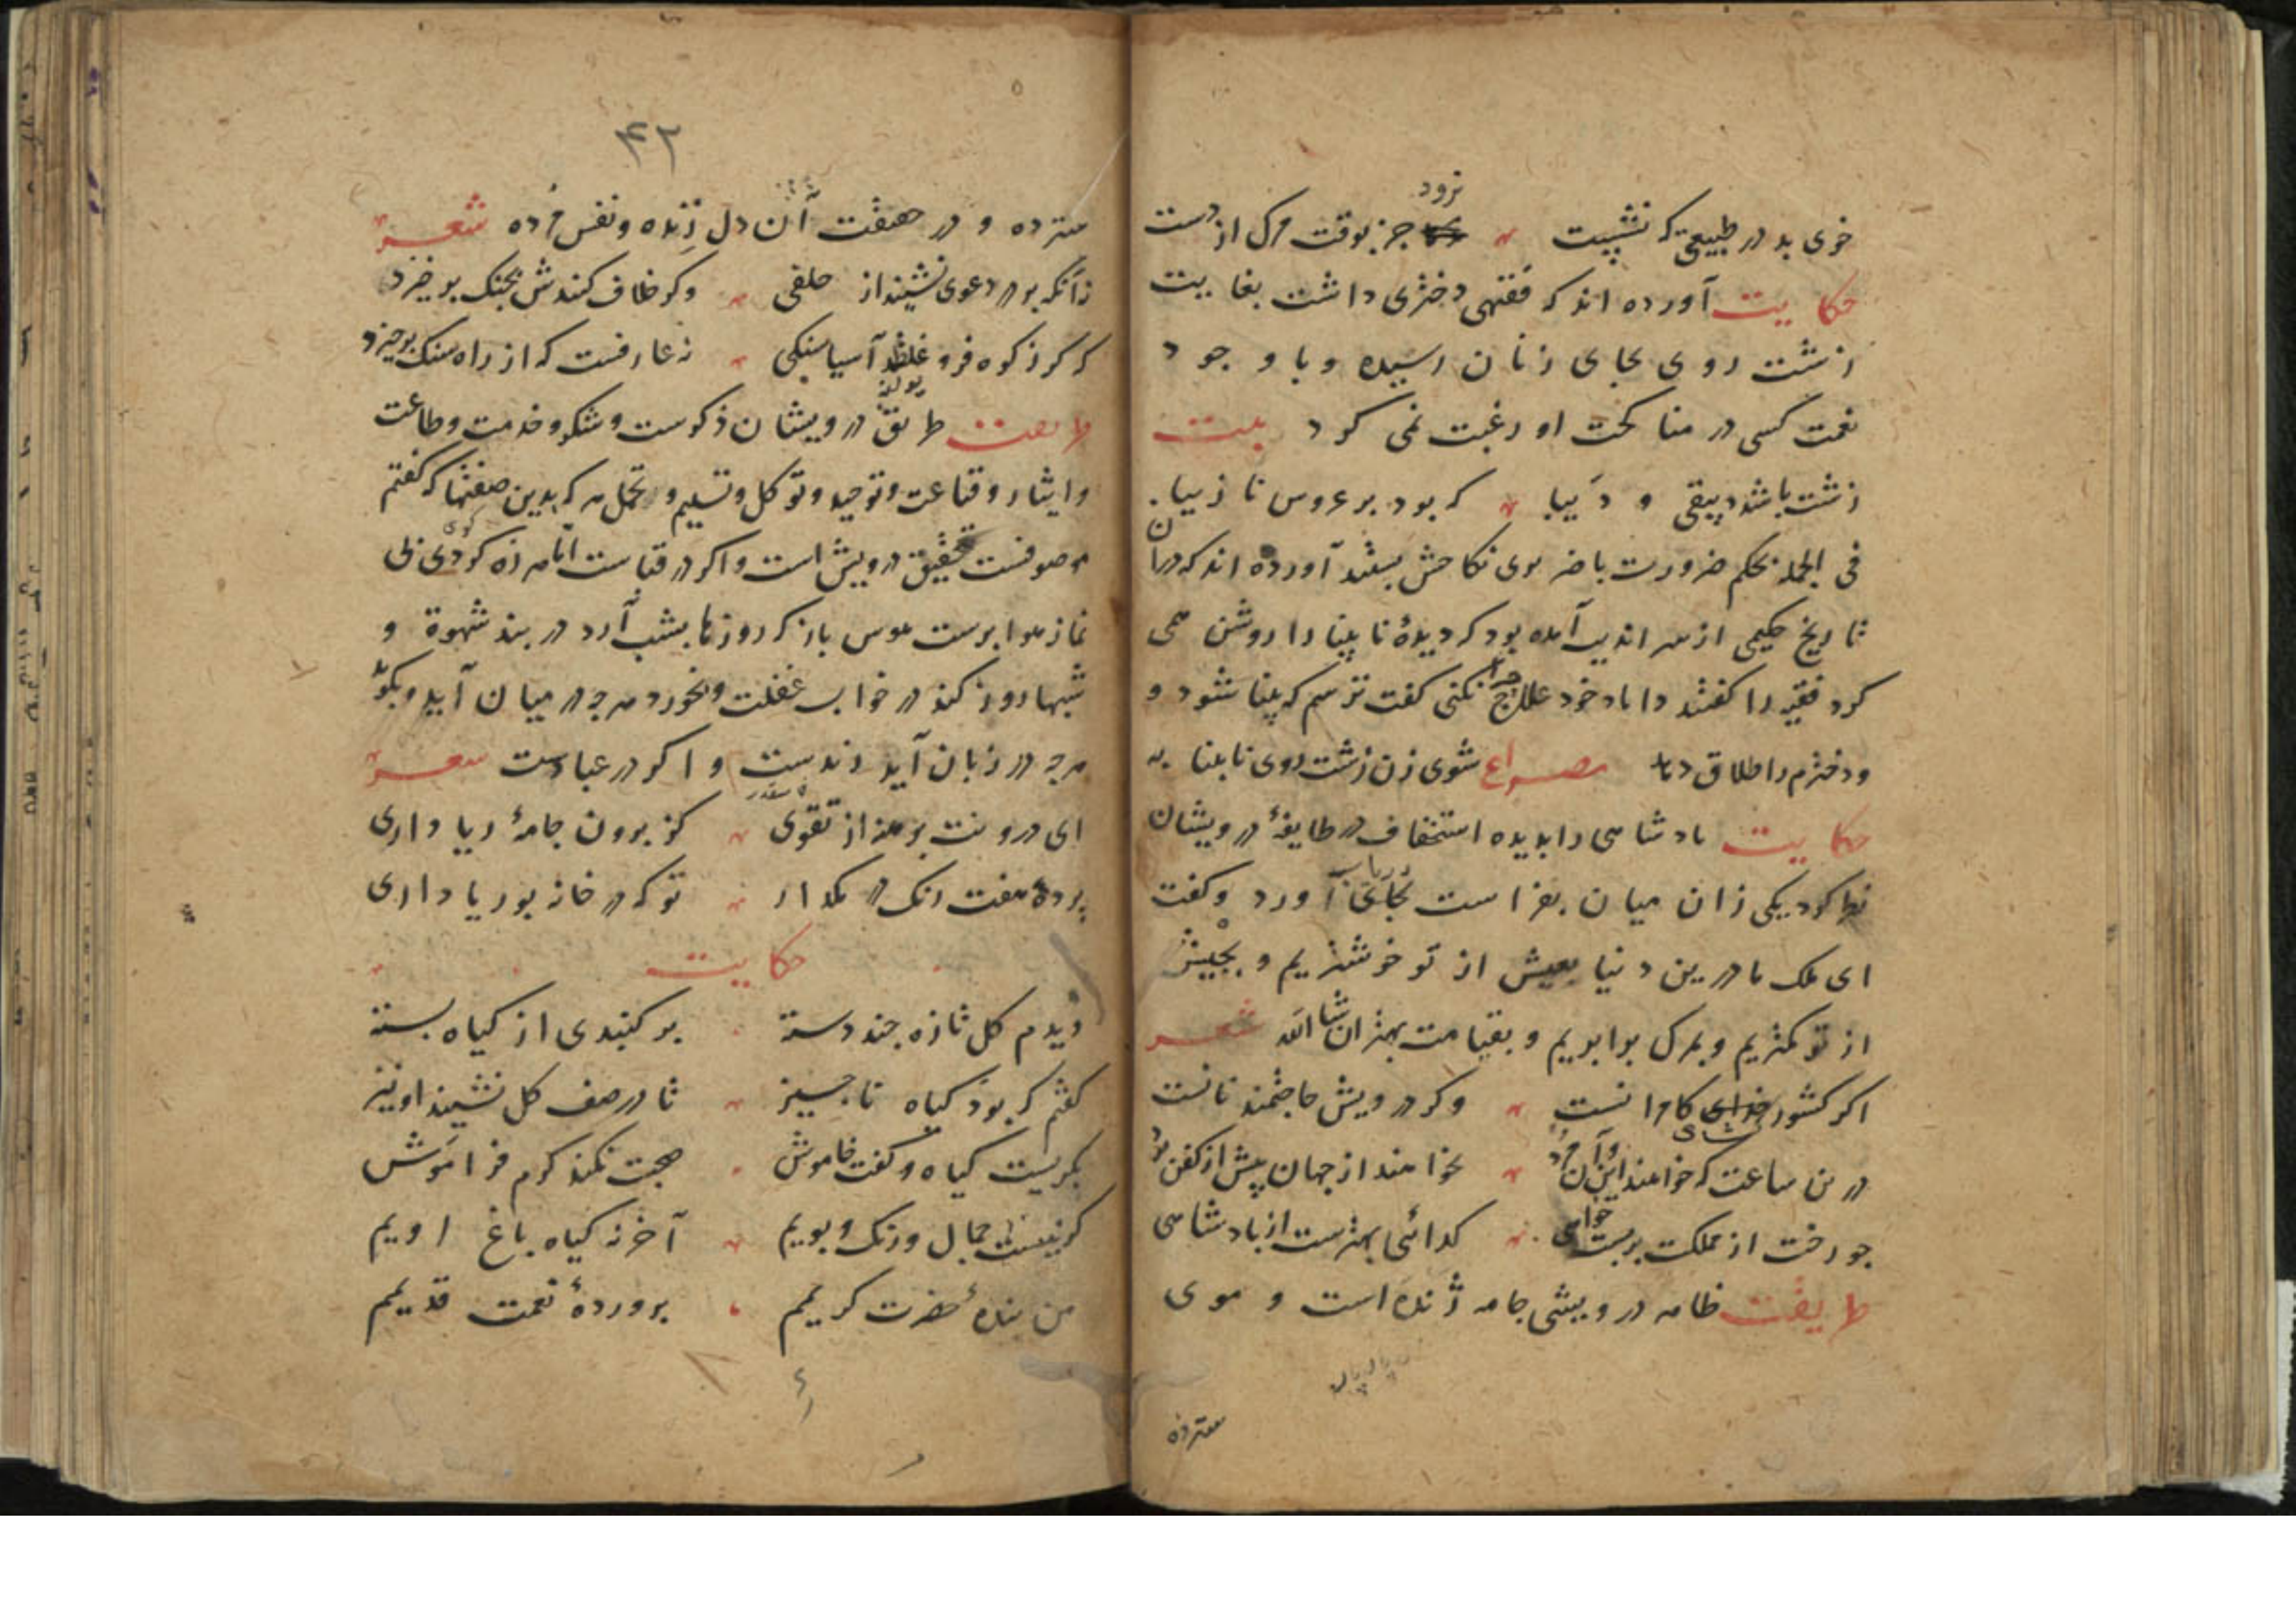 نرود
خوی بد در طبیعتی که نشست جز بوقت مرک از دست
حکایت آورده اند که فقیهی دختری داشت بغایت
زشت روی بجای زنان رسیده و با وجود
نعمت کسی در مناکحت او رغبت نمی کرد بیت
زشت باشد دیبقی و دیبا که بود بر عروس نا زیبا
فی الجمله بحکم ضرورت با ضریری نکاحش بستند آورده اند که در آن
تاریخ حکیمی از سراندیب آمده بود که دیدۀ نابینا را روشن همی
کرد فقیه را کفتند داماد خود را علاج چرا نکنی کفت ترسم که بینا شود و
و دخترم را طلاق دهد مصراع شوی زن زشت روی نابینا به
حکایت بادشاهی را بدیده استحقاف در طایفۀ درویشان
نظر کرد یکی زان میان بفراست بجای آورد و کفت
ای ملک ما درین دنیا بعیش از تو خوشتریم و بجیش
از تو کمتریم و بمرک برابریم و بقیامت بهتر ان شا الله شعر
اکر کشور خدای کامرانست وکر درویش حاجتمند نانست
در ان ساعت که خواهند این و آن مرد نخواهند از جهان پیش از کفن برد
جو رخت از مملکت بربست خواهی کدائی بهترست از بادشاهی
طریقت ظاهر درویشی جامه ژنده است و موی
سترده
۴۲
سترده و در حقیقت آن دل زنده و نفس مرده شعر
زانکه بر در دعوی نشیند از خلقی وکر خلاف کنندش بجنک بر خیزد
که کر ز کوه فرو غلطد آسیا سنکی نه عارفست که از راه سنک برخیزد
طریقت طریق درویشان ذکرست و شکر و خدمت و طاعت
و ایثار و قناعت و توحید و توکل و تسلیم و تحمل هر که بدین صفتها که کفتم
موصوفست بتحقیق درویش است و اکر در قباست امّا هرزه کردی بی
نماز هوا پرست هوس باز که روزها بشب آرد در بند شهوة و
شبها روز کند در خواب غفلت و بخورد هرجه در میان آید و بکوید
هرجه در زبان آید رندست و اکر در عباست شعر
ای درونت برهنه از تقوی کز برون جامۀ ریا داری
پردۀ هفت رنک در مکدار تو که در خانه بوریا داری
حکایت
دیدم کل تازه جند دسته بر کنبدی از کیاه بسته
کفتم که بود کیاه ناجیز تا در صف کل نشیند او نیز
بکریست کیاه و کفت خاموش صحبت نکند کرم فراموش
کر نیست جمال و رنک و بویم آخر نه کیاه باغ اویم
من بندۀ حضرت کریمم بروردۀ نعمت قدیمم